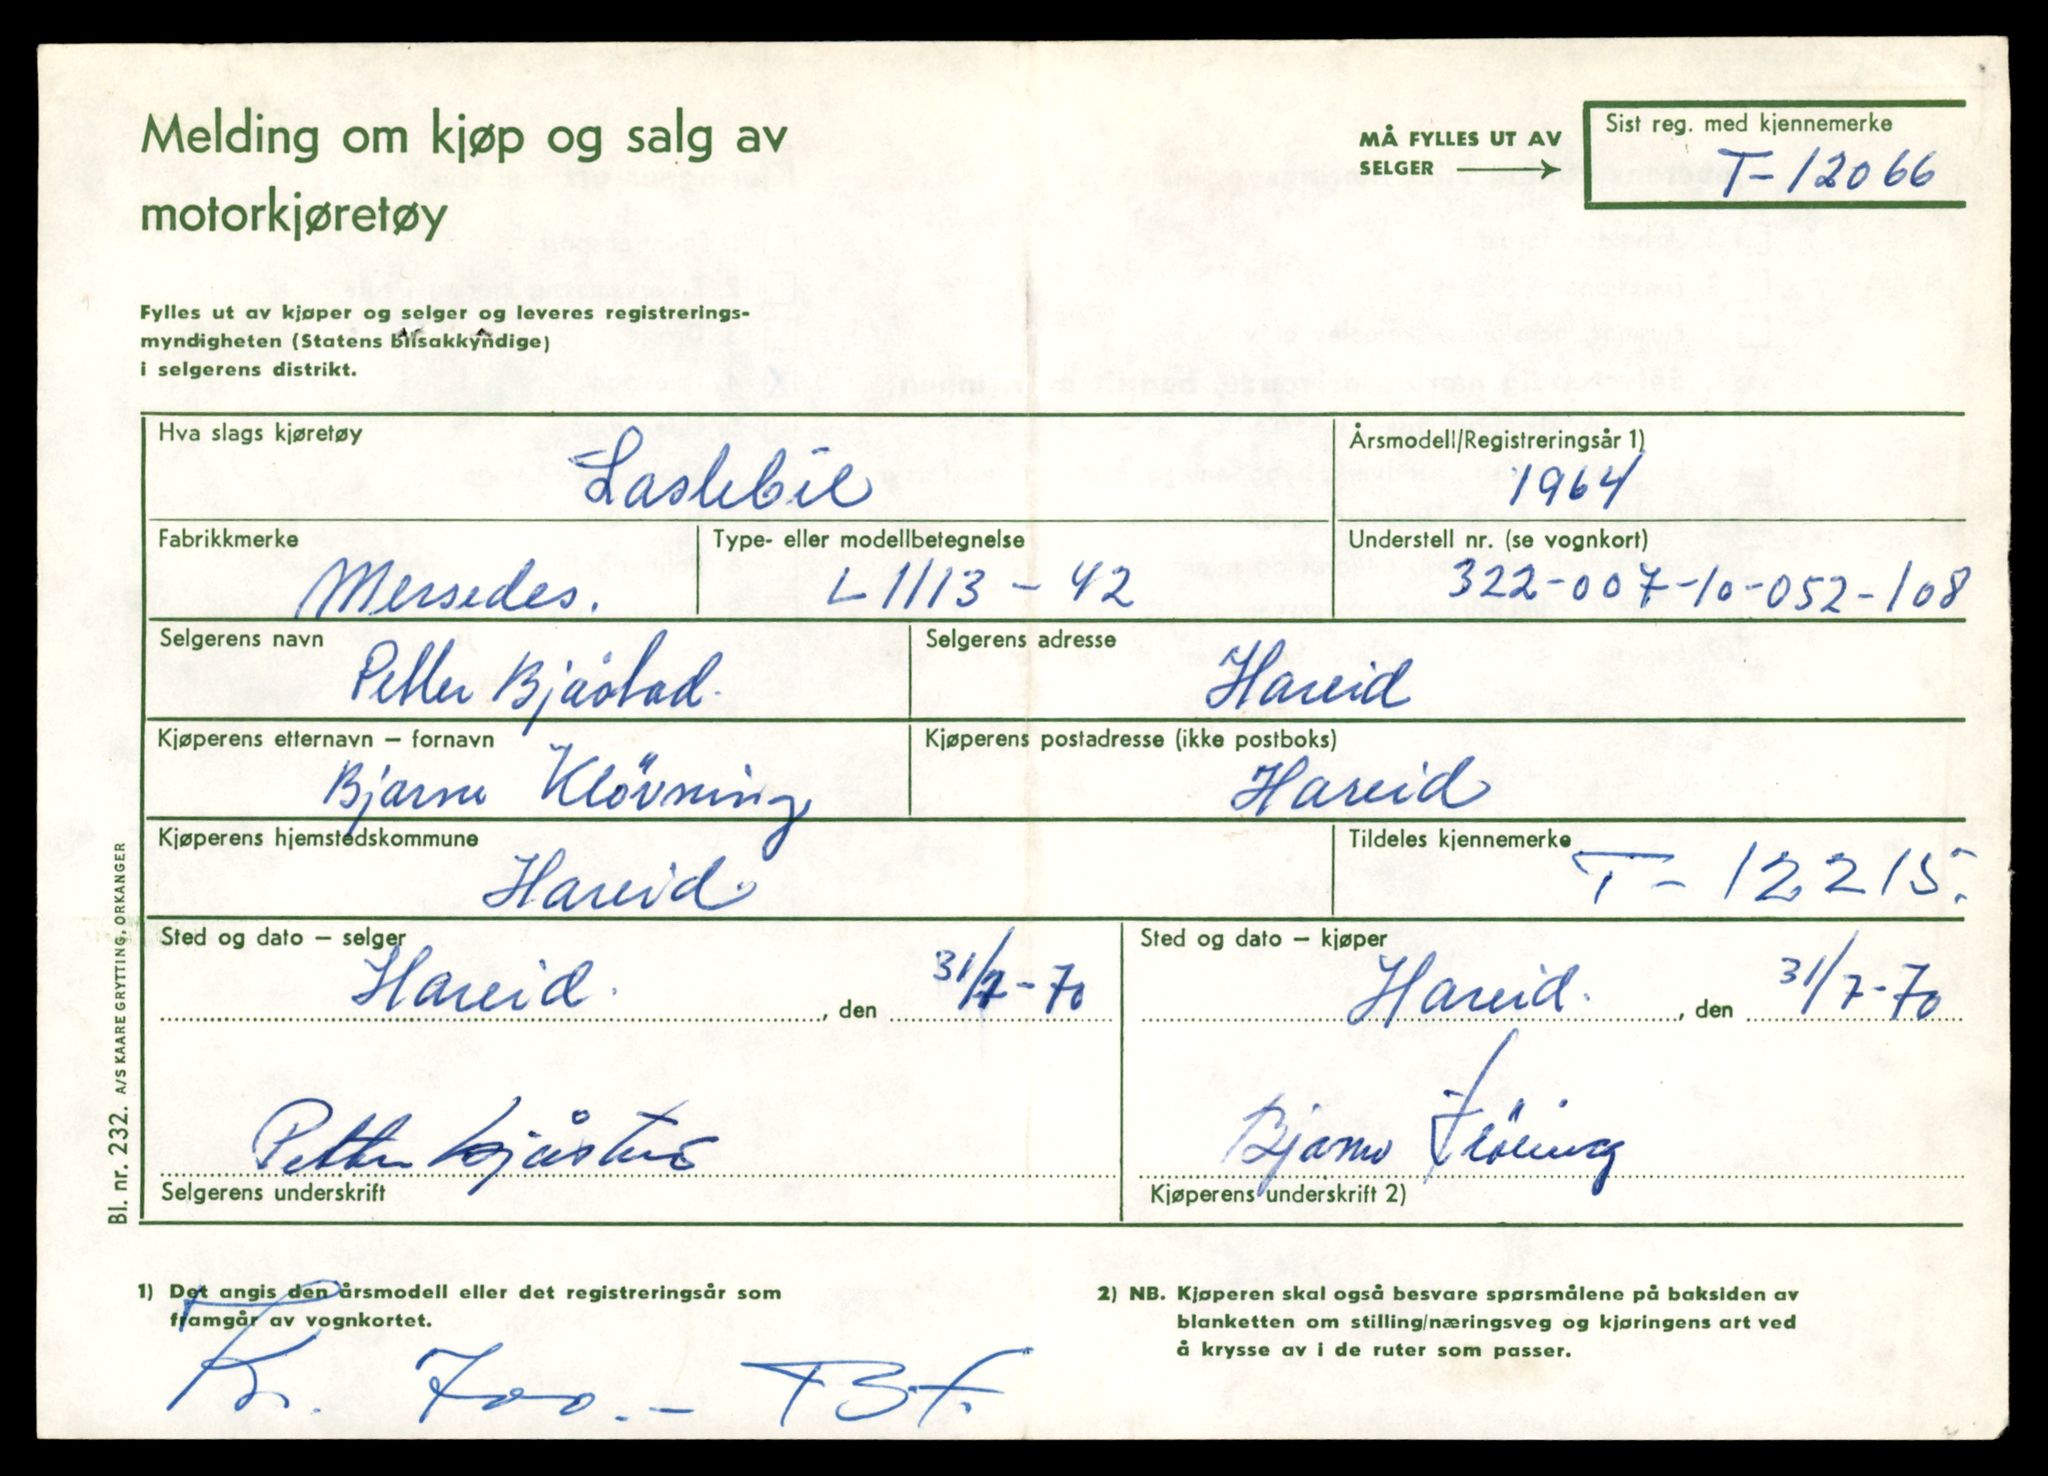 Melding om kjøp og salg av
motorkjøretøy
MÅ FYLLES UT AV
SELGER
Sist reg. med kjennemerke
T-12066
Fylles ut av kjøper og selger og leveres registrerings-
myndigheten (Statens bilsakkyndige)
i selgerens distrikt.
Hva slags kjøretøy
Lastebil
Årsmodell/Registreringsår 1)
1964
Fabrikkmerke
Mersedes.
Type- eller modellbetegnelse
L1113-42
Understell nr. (se vognkort)
322-007-10-052-108
Selgerens navn
Petter Bjåstad.
Selgerens adresse
Hareid
Kjøperens etternavn – fornavn
Bjarne Klövning
Kjøperens postadresse (ikke postboks)
Hareid
Kjøperens hjemstedskommune
Hareid
Tildeles kjennemerke
T-12215.
Sted og dato – selger
Hareid. , den 31/7-70
Sted og dato – kjøper
Hareid. , den 31/7-70
Petter Bjåstad
Selgerens underskrift
Bjarne
Kjøperens underskrift 2)
1) Det angis den årsmodell eller det registreringsår som
framgår av vognkortet.
2) NB. Kjøperen skal også besvare spørsmålene på baksiden av
blanketten om stilling/næringsveg og kjøringens art ved
å krysse av i de ruter som passer.
Kr. 700.-
Bl. nr. 232. A/S KAARE GRYTTING, ORKANGER